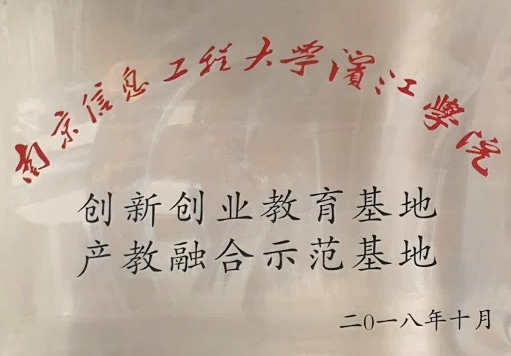 南京信息工程大学濱江學院
创新创业教育基地
产教融合示范基地
二0一八年十月